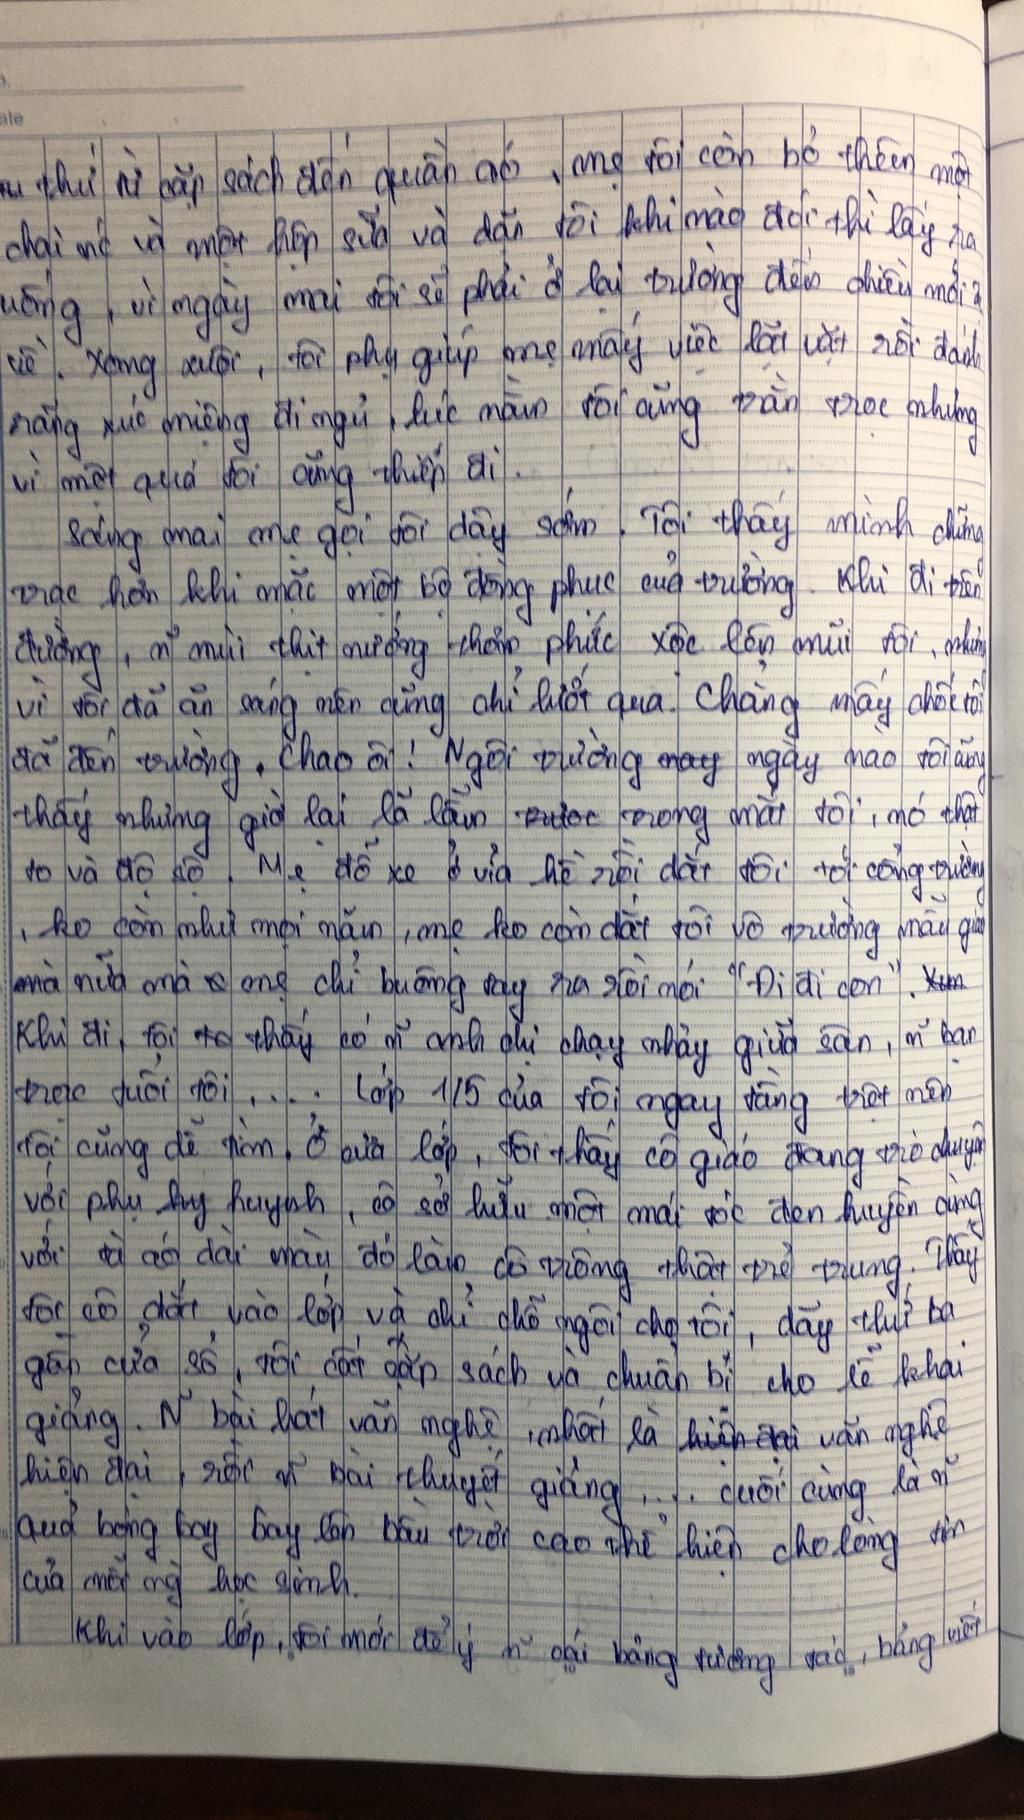 thứ từ cặp sách đến quần áo, mẹ tôi còn bỏ thêm một
chai nc và một hộp sữa và dặn tôi khi nào đói thì lấy ra
uống, vì ngày mai tôi sẽ phải ở lại trường đến chiều mới
về. Xong xuôi, tôi phụ giúp mẹ mấy việc lặt vặt rồi đánh
răng xúc miệng đi ngủ, lúc nằm tôi cũng trằn trọc nhưng
vì mệt quá tôi cũng thiếp đi.
Sáng mai mẹ gọi tôi dậy sớm. Tôi thấy mình chững
trạc hơn khi mặc một bộ đồng phục của trường. Khi đi trên
đường, n~ mùi thịt nướng thơm phức xộc lên mũi tôi, nhưng
vì tôi đã ăn sáng nên cũng chỉ lướt qua. Chẳng mấy chốc tôi
đã đến trường. Chao ôi! Ngôi trường này ngày nào tôi cũng
thấy nhưng giờ lại lạ lẫm trong mắt tôi, nó thật
to và đồ sộ. Mẹ đỗ xe ở vỉa hè rồi dắt tôi tới cổng trường
, ko còn như mọi năm, mẹ ko còn dắt tôi vô trường mẫu giáo
mà nữa mà mẹ chỉ buông tay ra rồi nói "Đi đi con".
Khi đi, tôi thấy có n~ anh chị chạy nhảy giữa sân, n~ bạn
trạc tuổi tôi, ... Lớp 1/5 của tôi ngay tầng trệt nên
tôi cũng dễ tìm. Ở cửa lớp, tôi thấy cô giáo đang trò chuyện
với phụ huynh, cô sở hữu một mái tóc đen huyền cùng
với tà áo dài màu đỏ làm cô trông thật trẻ trung. Thấy
tôi cô dắt vào lớp và chỉ chỗ ngồi cho tôi, dãy thứ ba
gần cửa sổ, tôi cất cặp sách và chuẩn bị cho lễ khai
giảng. N~ bài hát văn nghệ, nhất là văn nghệ
hiện đại, rồi n~ bài thuyết giảng, ... cuối cùng là n~
quả bóng bay bay lên bầu trời cao thể hiện cho lòng tin
của mỗi ng học sinh.
Khi vào lớp, tôi mới để ý n~ cái bảng tương tác, bảng viết